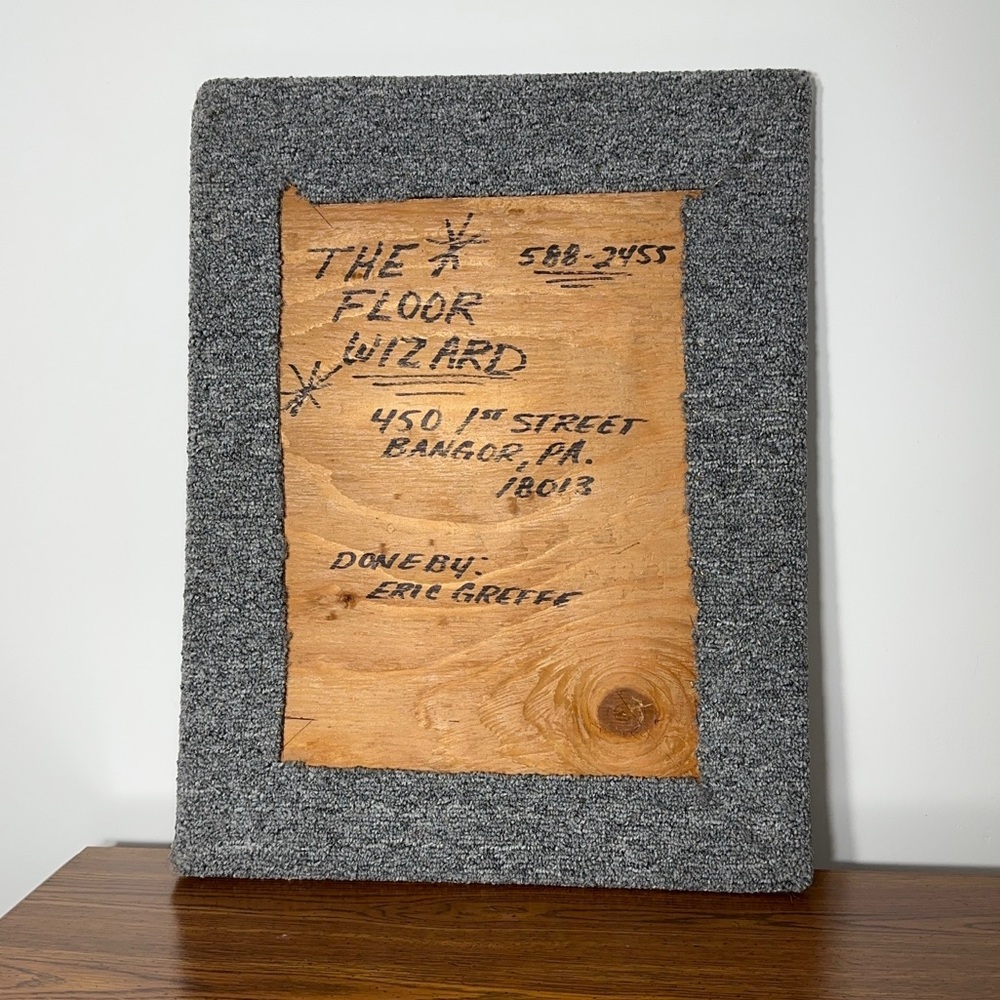 THE 588-2455
FLOOR
WIZARD
450 1ST STREET
BANGOR, PA.
18013
DONE BY:
ERIC GREFFE